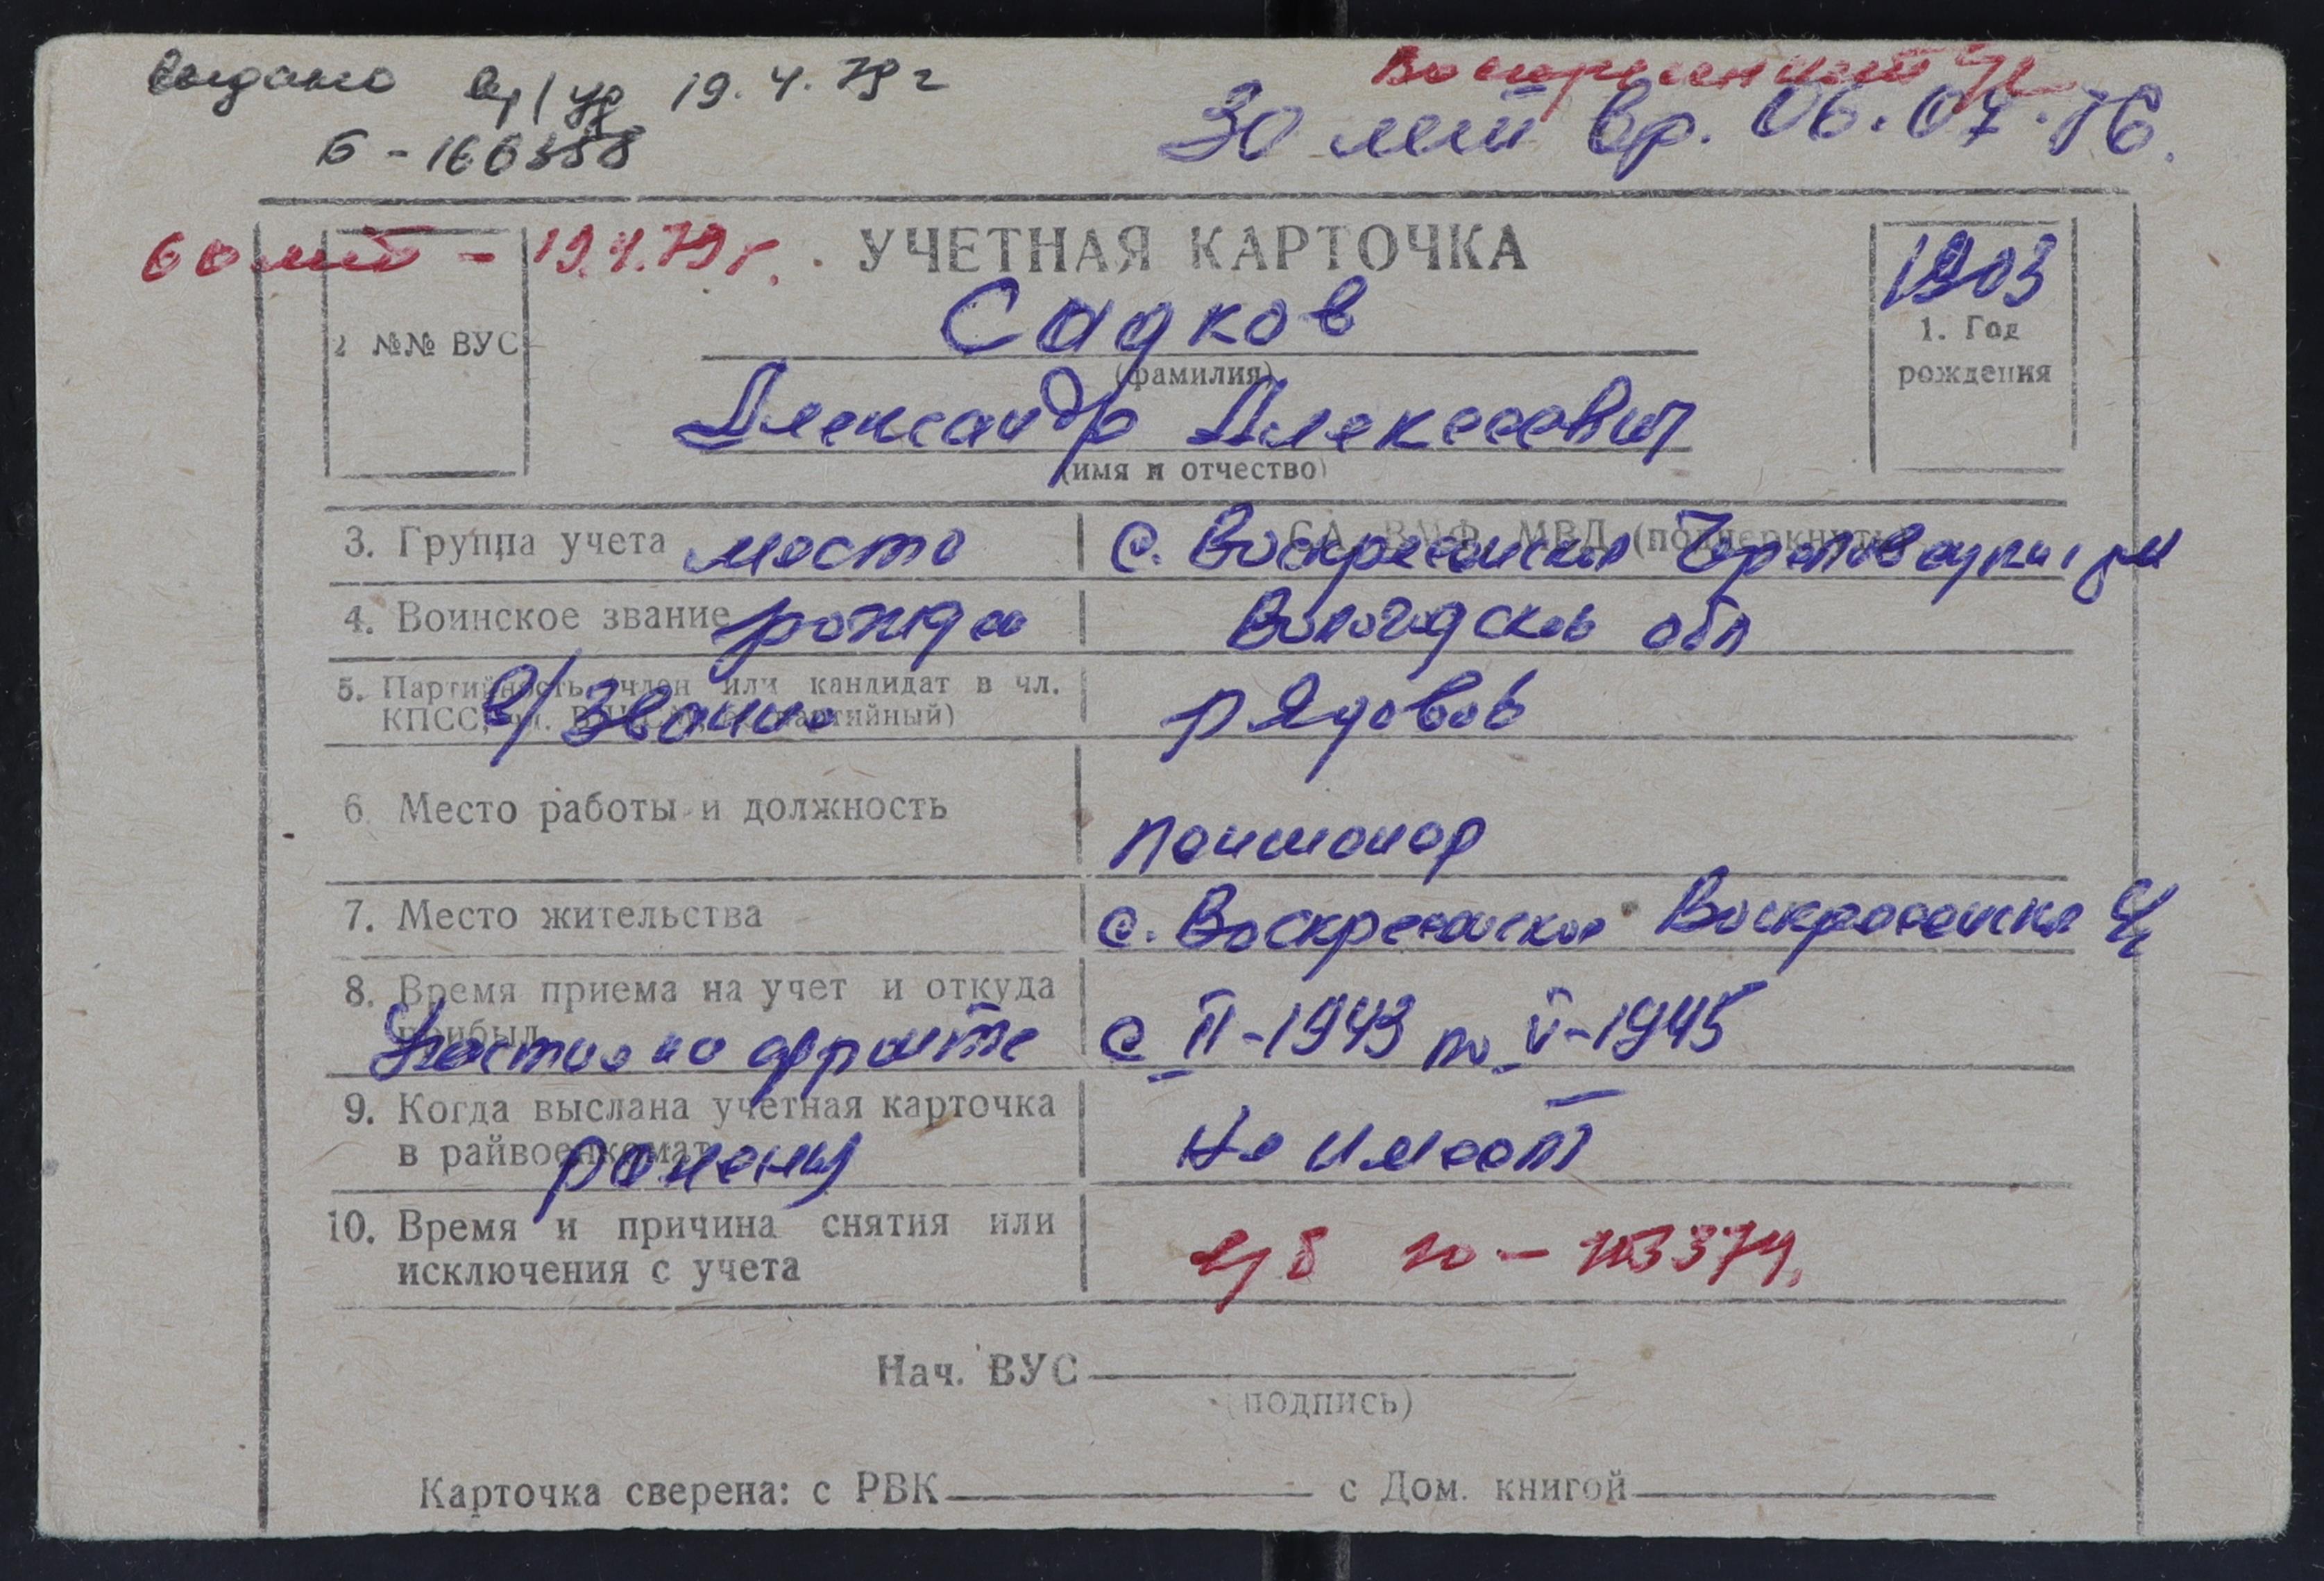 Выдано 19.4.79 г
Б-166358
Воскресенский
30 лет вр. 06.07.76.
60 лет - 19.4.79 г.
УЧЕТНАЯ КАРТОЧКА
1903
1. Год
рождения
2 №№ ВУС
Садков
(фамилия)
Александр Алексеевич
(имя и отчество)
3. Группа учета место СА, ВМФ, МВД (подчеркнуть) с. Воскресенское Череповецкий
4. Воинское звание рожде Вологодской обл
5. Партийность член или кандидат в чл.
КПСС, чл. партийный)
в/звание рядовой
6. Место работы и должность
пенсионер
7. Место жительства с. Воскресенское Воскресенск
8. Время приема на учет и откуда
прибыл
Участие на фронте с II-1943 по V-1945
9. Когда выслана учетная карточка
в райвоенкомат
ранены Не имеет
10. Время и причина снятия или
исключения с учета
Нач. ВУС
(подпись)
Карточка сверена: с РВК с Дом. книгой